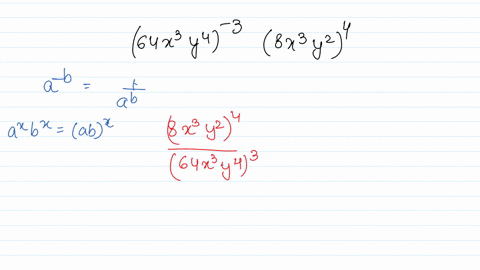 (64x³y⁴)⁻³ (8x³y²)⁴
a⁻ᵇ = 1/aᵇ
aˣbˣ = (ab)ˣ
(8x³y²)⁴
(64x³y⁴)³